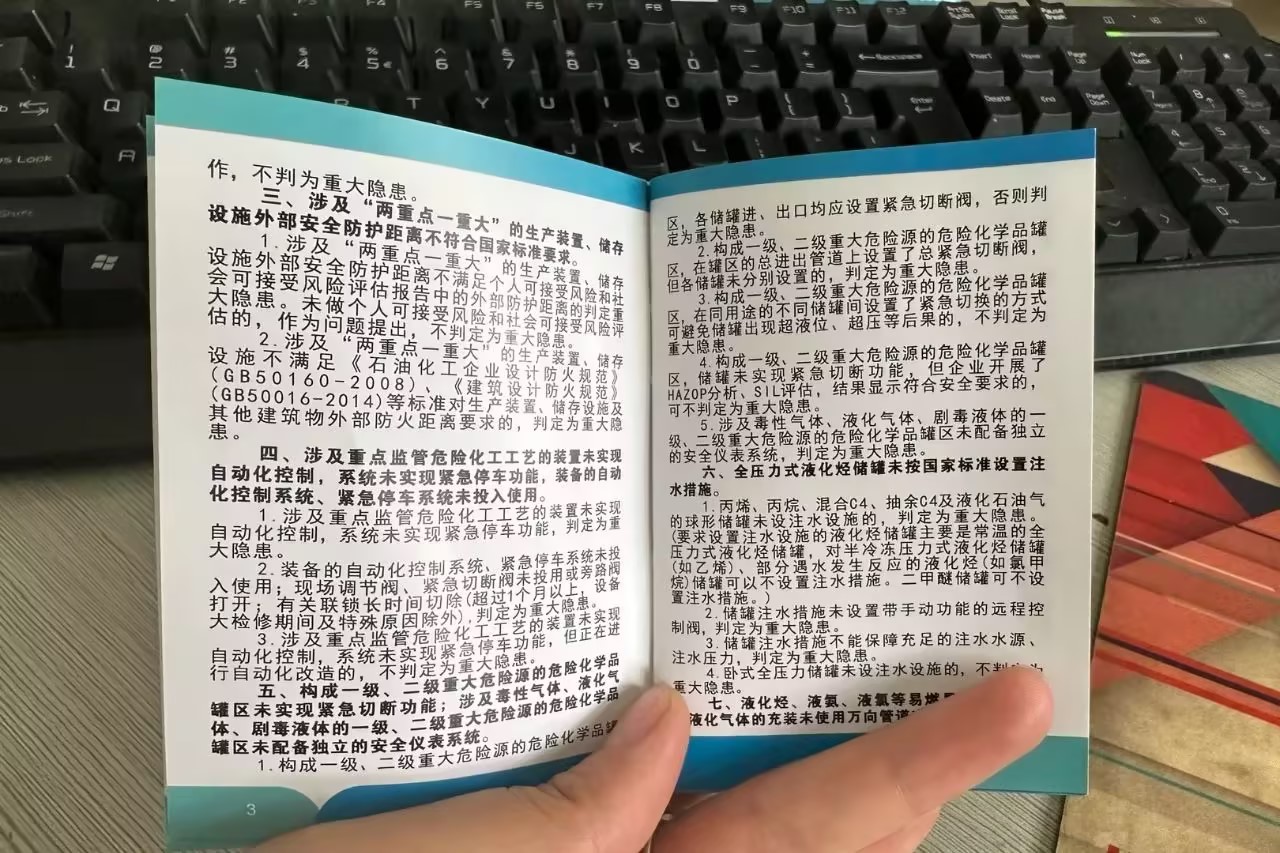 作，不判为重大隐患。
三、涉及“两重点一重大”的生产装置、储存
设施外部安全防护距离不符合国家标准要求。
1.涉及“两重点一重大”的生产装置、储存
设施外部安全防护距离不满足个人可接受风险和社
会可接受风险评估报告中的外部防护距离的判定重
大隐患。未做个人可接受风险和社会可接受风险评
估的，作为问题提出，不判定为重大隐患。
2.涉及“两重点一重大”的生产装置、储存
设施不满足《石油化工企业设计防火规范》
(GB50160-2008)、《建筑设计防火规范》
(GB50016-2014)等标准对生产装置、储存设施及
其他建筑物外部防火距离要求的，判定为重大隐
患。
四、涉及重点监管危险化工工艺的装置未实现
自动化控制，系统未实现紧急停车功能，装备的自动
化控制系统、紧急停车系统未投入使用。
1.涉及重点监管危险化工工艺的装置未实现
自动化控制，系统未实现紧急停车功能，判定为重
大隐患。
2.装备的自动化控制系统、紧急停车系统未投
入使用；现场调节阀、紧急切断阀未投用或旁路阀
打开；有关联锁长时间切除(超过1个月以上，设备
大检修期间及特殊原因除外)，判定为重大隐患。
3.涉及重点监管危险化工工艺的装置未实现
自动化控制，系统未实现紧急停车功能，但正在进
行自动化改造的，不判定为重大隐患。
五、构成一级、二级重大危险源的危险化学品
罐区未实现紧急切断功能；涉及毒性气体、液化气
体、剧毒液体的一级、二级重大危险源的危险化学品
罐区未配备独立的安全仪表系统。
1.构成一级、二级重大危险源的危险化学品罐
3
区，各储罐进、出口均应设置紧急切断阀，否则判
定为重大隐患。
2.构成一级、二级重大危险源的危险化学品罐
区，在罐区的总进出管道上设置了总紧急切断阀，
但各储罐未分别设置的，判定为重大隐患。
3.构成一级、二级重大危险源的危险化学品罐
区，在同用途的不同储罐间设置了紧急切换的方式
可避免储罐出现超液位、超压等后果的，不判定为
重大隐患。
4.构成一级、二级重大危险源的危险化学品罐
区，储罐未实现紧急切断功能，但企业开展了
HAZOP分析、SIL评估，结果显示符合安全要求的，
可不判定为重大隐患。
5.涉及毒性气体、液化气体、剧毒液体的一
级、二级重大危险源的危险化学品罐区未配备独立
的安全仪表系统，判定为重大隐患。
六、全压力式液化烃储罐未按国家标准设置注
水措施。
1.丙烯、丙烷、混合C4、抽余C4及液化石油气
的球形储罐未设注水设施的，判定为重大隐患。
(要求设置注水设施的液化烃储罐主要是常温的全
压力式液化烃储罐，对半冷冻压力式液化烃储罐
(如乙烯)、部分遇水发生反应的液化烃(如氯甲
烷)储罐可以不设置注水措施。二甲醚储罐可不设
置注水措施。)
2.储罐注水措施未设置带手动功能的远程控
制阀，判定为重大隐患。
3.储罐注水措施不能保障充足的注水水源、
注水压力，判定为重大隐患。
4.卧式全压力储罐未设注水设施的，不判定为
重大隐患。
七、液化烃、液氨、液氯等易燃
液化气体的充装未使用万向管道